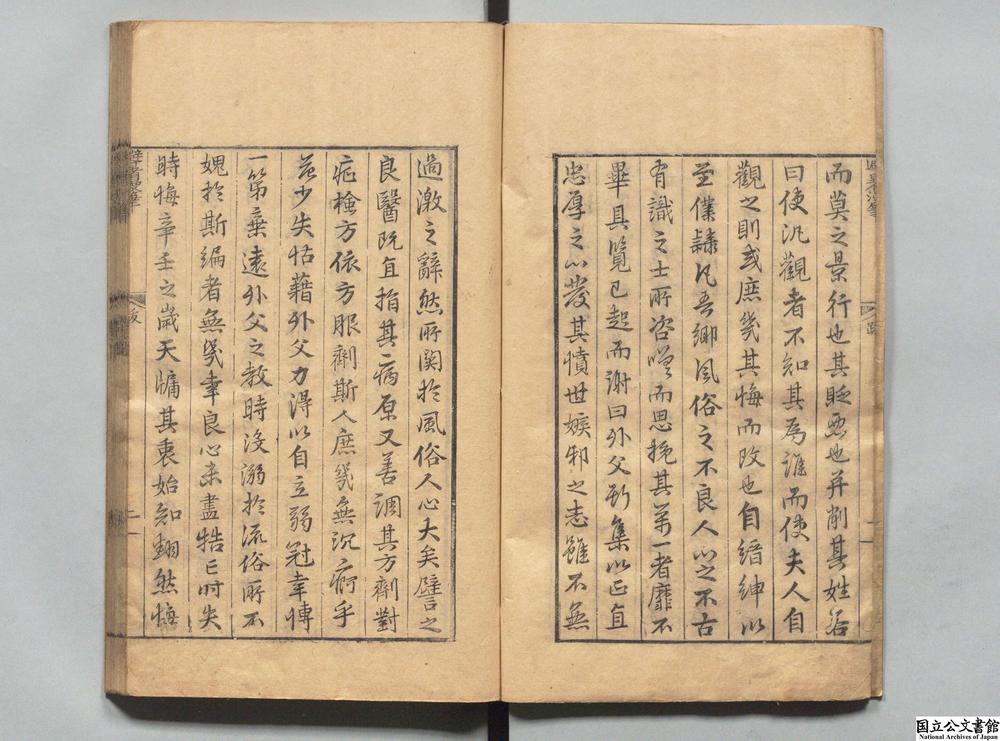 而莫之景行也其貶惡也并削其姓名
曰使汎觀者不知其為誰而使夫人自
觀之則或庶幾其悔而改也自縉紳以
至僕隸凡吾鄉風俗之不良人心之不古
有識之士所咨嗟而思挽其萬一者靡不
畢具覽已起而謝曰外父所集以正直
忠厚之心發其憤世嫉邪之志雖不無
過激之辭然所關於風俗人心大矣譬之
良醫既直指其病原又善調其方劑對
症檢方依方服劑斯人庶幾無沉痾乎
益少失怙藉外父力得以自立弱冠幸博
一第棄遠外父之教時沒溺於流俗所不
媿於斯編者無幾幸良心未盡牿亡時失
時悔辛壬之歲天牖其衷始知翻然悔
跋
二
國立公文書館
National Archives of Japan